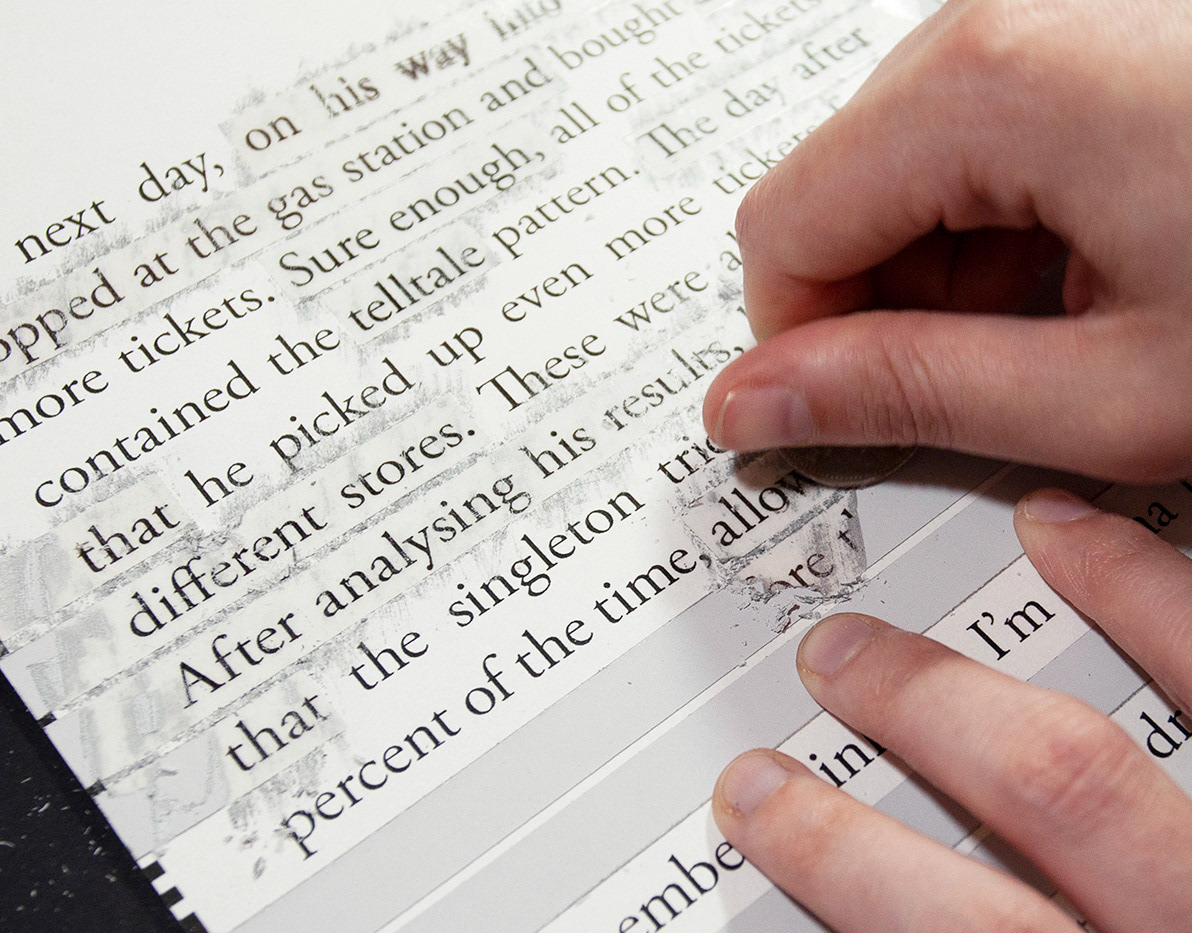 next day, on his way into
opped at the gas station and bought
more tickets. Sure enough, all of the tickets
contained the telltale pattern. The day after
that he picked up even more tickets
different stores. These were
After analysing his results,
that the singleton
percent of the time, allow
I'm